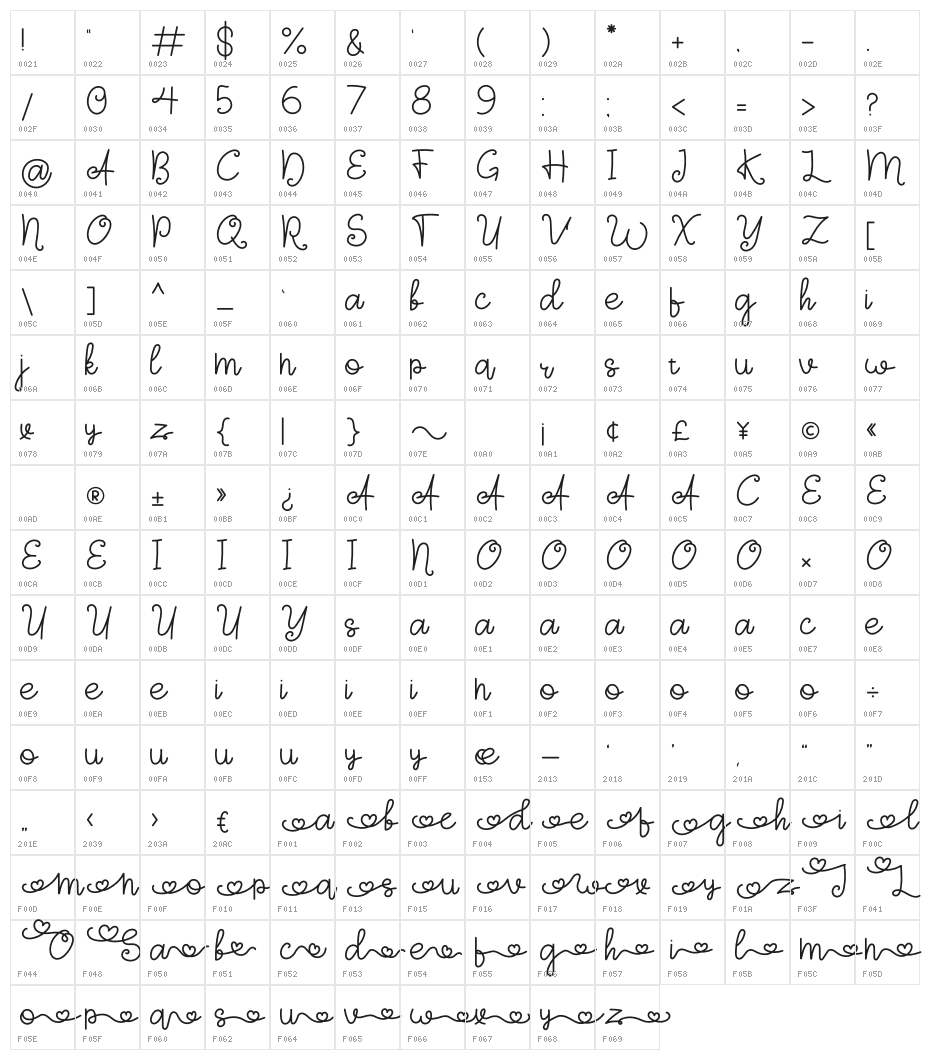 ! " # $ % & ' ( ) * + , - .
0021 0022 0023 0024 0025 0026 0027 0028 0029 002A 002B 002C 002D 002E
/ 0 4 5 6 7 8 9 : ; < = > ?
002F 0030 0034 0035 0036 0037 0038 0039 003A 003B 003C 003D 003E 003F
@ A B C D E F G H I J K L M
0040 0041 0042 0043 0044 0045 0046 0047 0048 0049 004A 004B 004C 004D
N O P Q R S T U V W X Y Z [
004E 004F 0050 0051 0052 0053 0054 0055 0056 0057 0058 0059 005A 005B
\ ] ^ _ ` a b c d e f g h i
005C 005D 005E 005F 0060 0061 0062 0063 0064 0065 0066 0067 0068 0069
j k l m n o p q r s t u v w
006A 006B 006C 006D 006E 006F 0070 0071 0072 0073 0074 0075 0076 0077
x y z { | } ~ ¡ ¢ £ ¥ © «
0078 0079 007A 007B 007C 007D 007E 00A0 00A1 00A2 00A3 00A5 00A9 00AB
® ± » ¿ A A A A A A C E E
00AD 00AE 00B1 00BB 00BF 00C0 00C1 00C2 00C3 00C4 00C5 00C7 00C8 00C9
E E I I I I N O O O O O × O
00CA 00CB 00CC 00CD 00CE 00CF 00D1 00D2 00D3 00D4 00D5 00D6 00D7 00D8
U U U U Y s a a a a a a c e
00D9 00DA 00DB 00DC 00DD 00DF 00E0 00E1 00E2 00E3 00E4 00E5 00E7 00E8
e e e i i i i n o o o o o ÷
00E9 00EA 00EB 00EC 00ED 00EE 00EF 00F1 00F2 00F3 00F4 00F5 00F6 00F7
o u u u u y y œ – ‘ ’ ‚ “ ”
00F8 00F9 00FA 00FB 00FC 00FD 00FF 0153 2013 2018 2019 201A 201C 201D
„ ‹ › € a b c d e f g h i l
201E 2039 203A 20AC F001 F002 F003 F004 F005 F006 F007 F008 F009 F00C
m n o p q s u v w x y z J L
F00D F00E F00F F010 F011 F013 F015 F016 F017 F018 F019 F01A F03F F041
O S a b c d e f g h i l m n
F044 F048 F050 F051 F052 F053 F054 F055 F056 F057 F058 F05B F05C F05D
o p q s u v w x y z
F05E F05F F060 F062 F064 F065 F066 F067 F068 F069